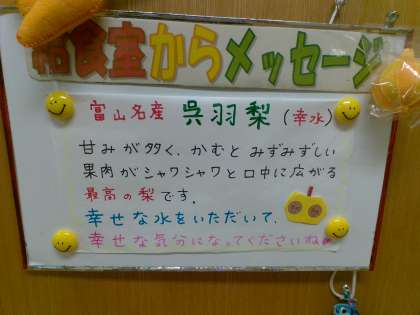 給食室からメッセージ
富山名産 呉羽梨(幸水)
甘みが多く、かむと みずみずしい
果肉がシャワシャワと口中に広がる
最高の梨です。
幸せな水をいただいて、
幸せな気分になってくださいね